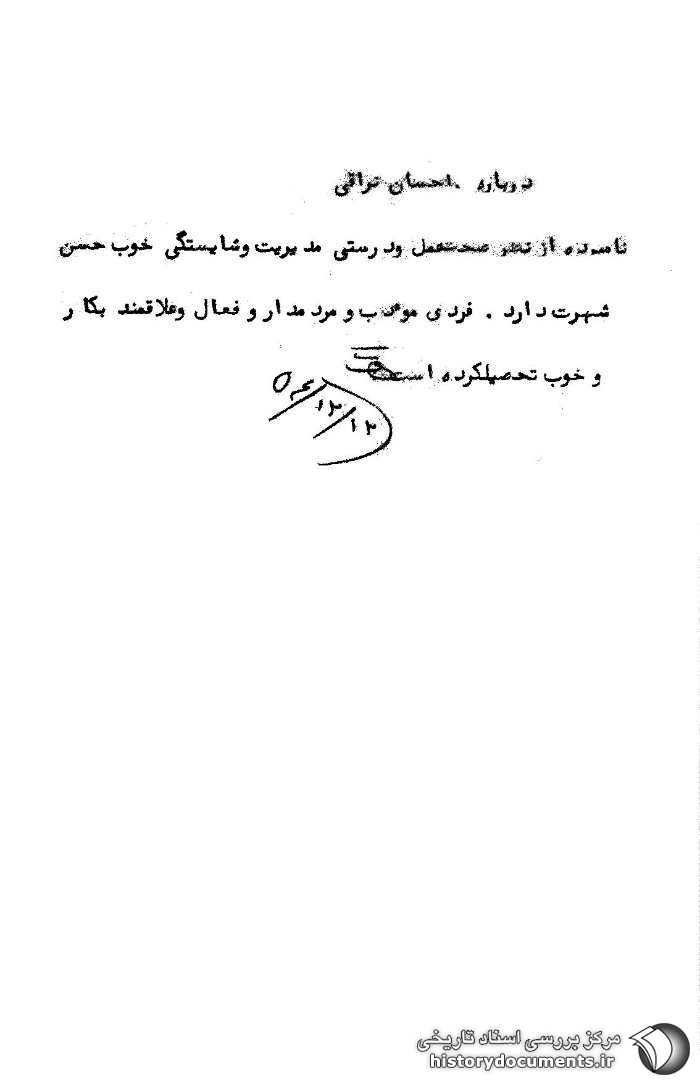 درباره احسان نراقی
نامبرده از نظر صحت عمل ودرستی مدیریت وشایستگی خوب حسن
شهرت دارد . فردی مودب و مردمدار و فعال وعلاقمند بکار
و خوب تحصیلکرده است
۱۲/۱۲/
مرکز بررسی اسناد تاریخی
historydocuments.ir